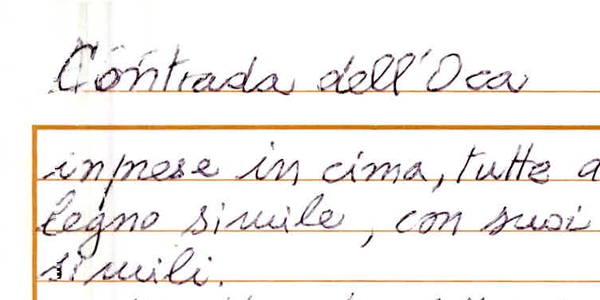 Contrada dell'Oca
inprese in cima, tutte a
legno simile, con suoi
simili.